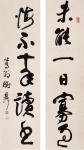 未能一日寡過
恨不十年讀書